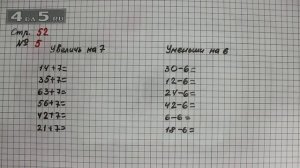 4DA5.RU
Стр. 52
№ 5
Увеличь на 7
14+7=
35+7=
63+7=
56+7=
42+7=
21+7=
Уменьши на 6
30-6=
12-6=
24-6=
42-6=
6-6=
18-6=